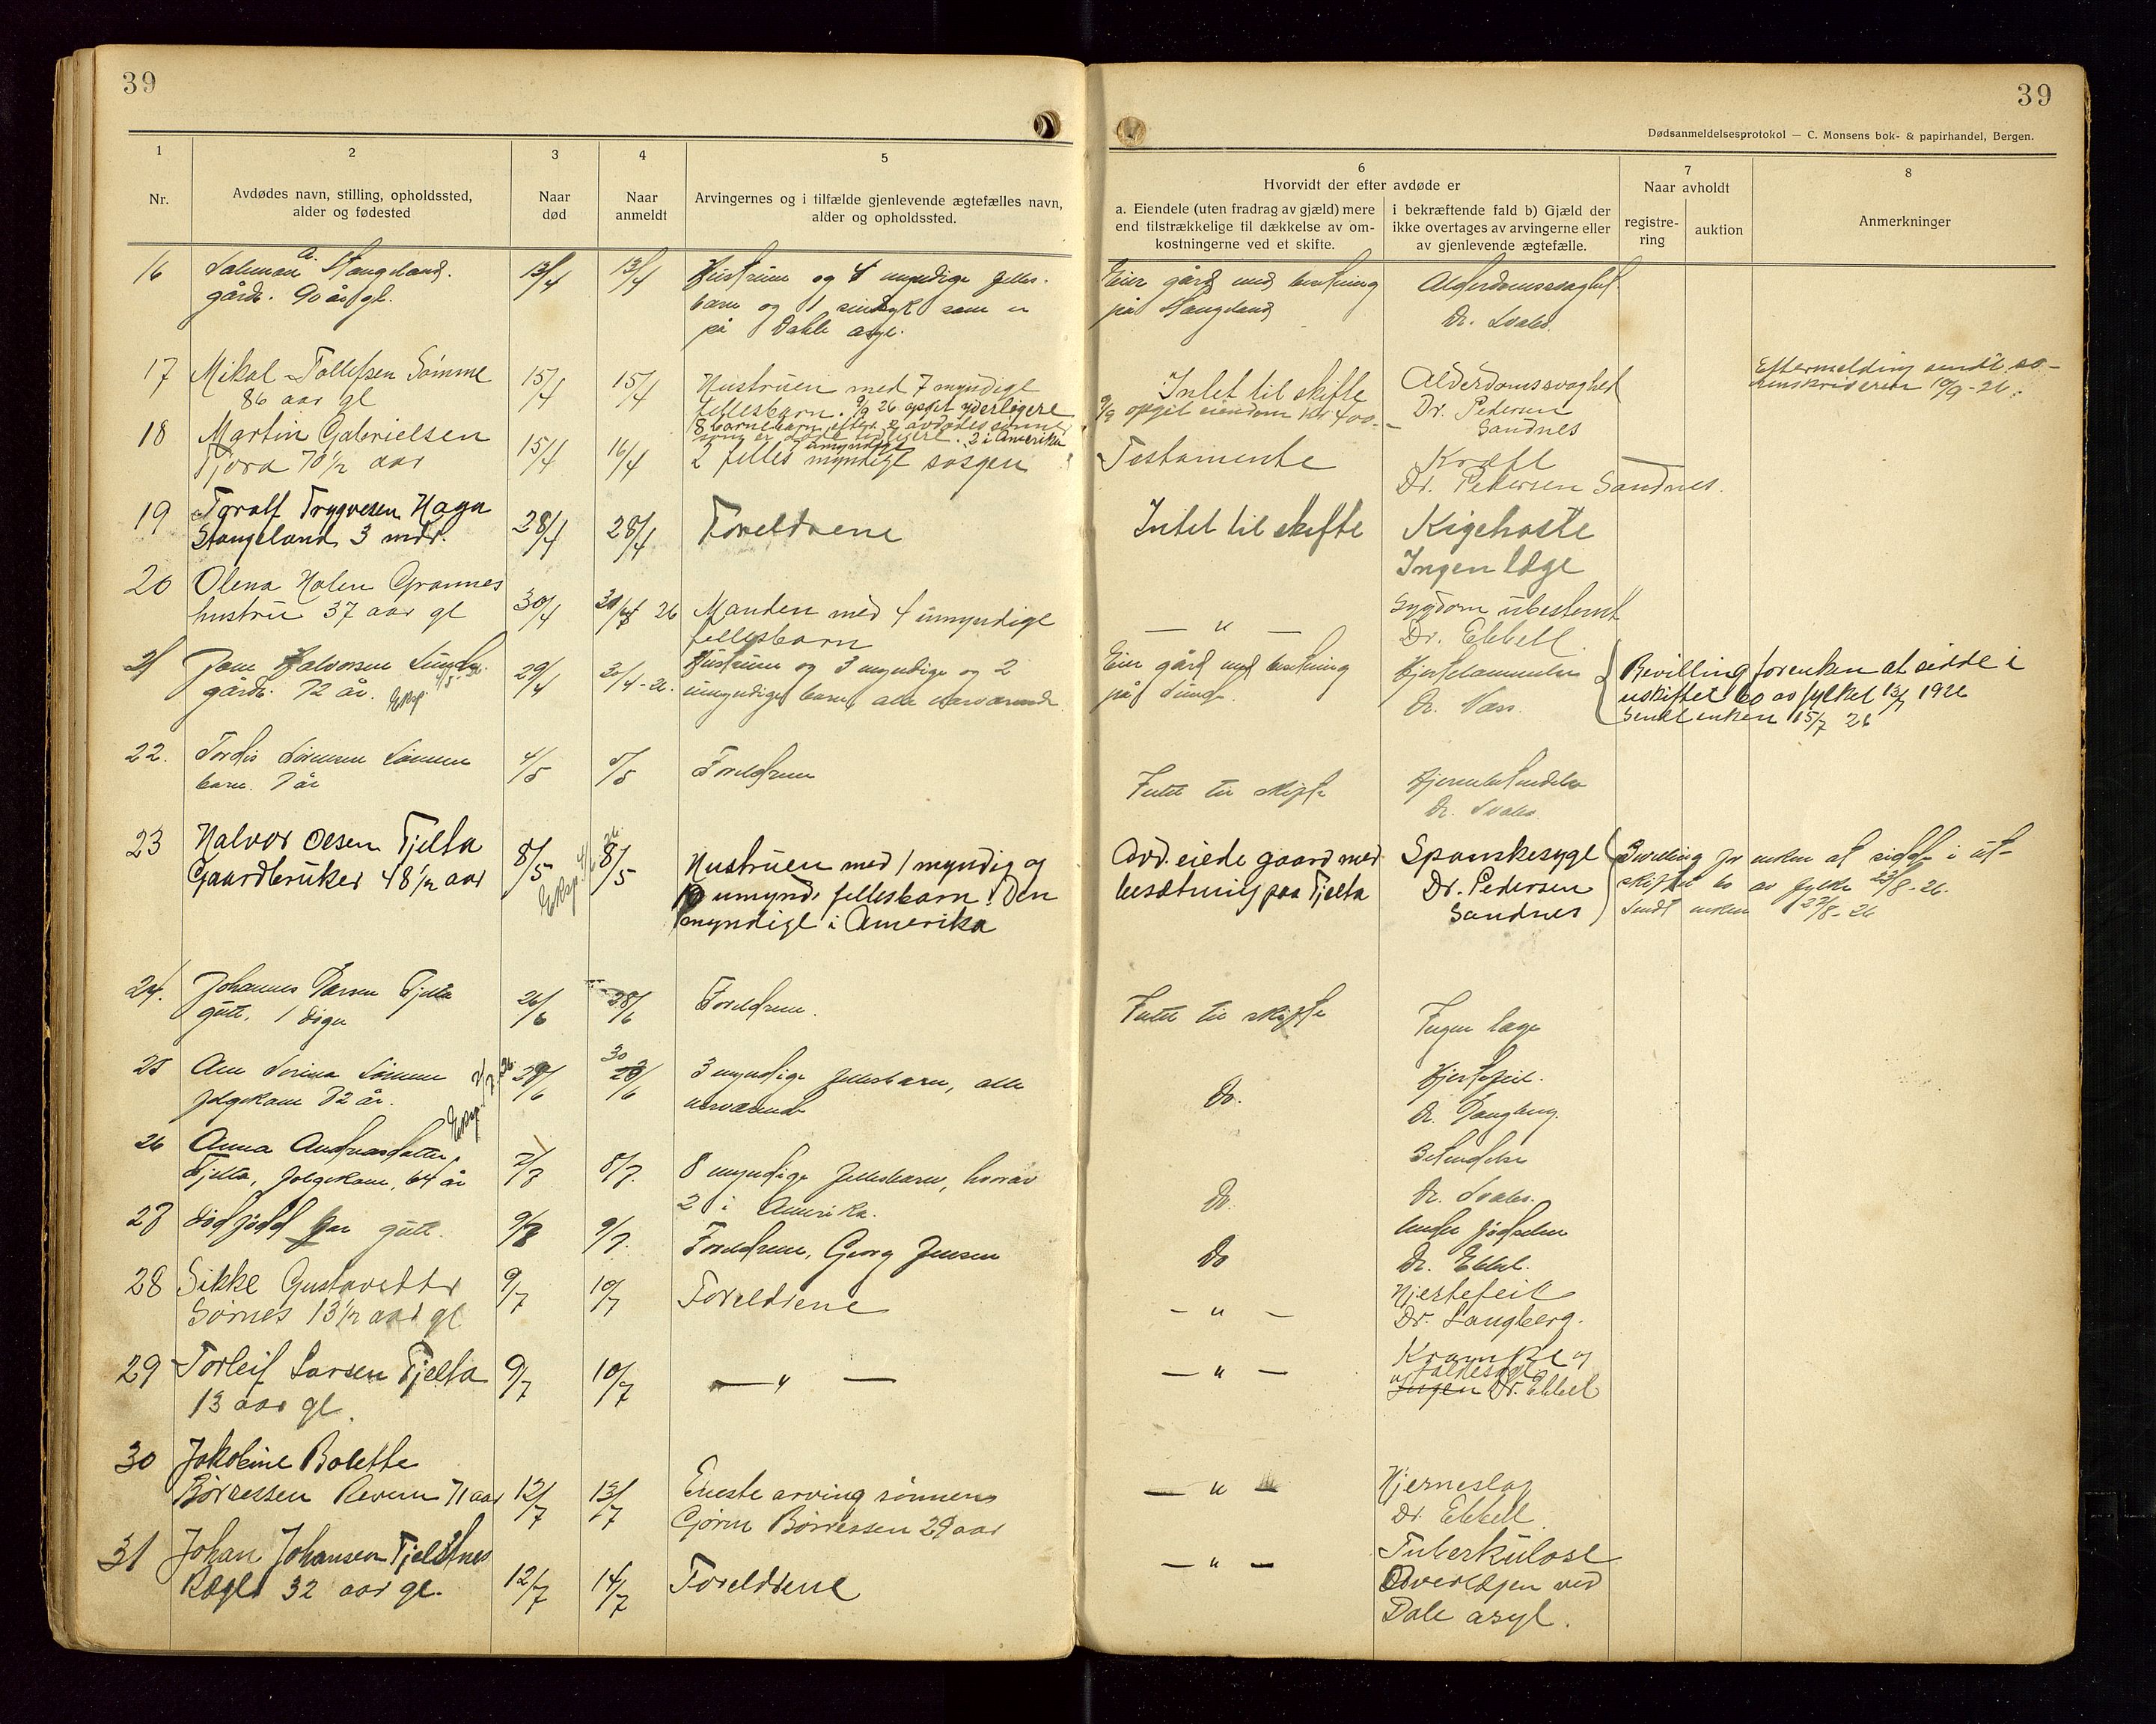 39
39
Dødsanmeldelsesprotokol — C. Monsens bok- & papirhandel, Bergen.
1
2
3
4
5
6
7
8
Nr.
Avdødes navn, stilling, opholdssted,
alder og fødested
Naar
død
Naar
anmeldt
Arvingernes og i tilfælde gjenlevende ægtefælles navn,
alder og opholdssted.
Hvorvidt der efter avdøde er
a. Eiendele (uten fradrag av gjæld) mere
end tilstrækkelige til dækkelse av om-
kostningerne ved et skifte.
i bekræftende fald b) Gjæld der
ikke overtages av arvingerne eller
av gjenlevende ægtefælle.
Naar avholdt
registre-
ring
auktion
Anmerkninger
16
Salmon A. Stangeland.
gårdb. 90 år gl.
13/4
13/4
Hustruen og 4 myndige felles-
barn og 1 sindsyk som er
på Dahle asyl.
Eier gård med besetning
på Stangeland
Alderdomssvaghet
Dr. Svabs.
17
Mikal Tollefsen Sømme
86 aar gl
15/4
15/4
Hustruen med 7 myndige
fellesbarn. 9/9 26 opgit yderligere
8 barnebarn efter 2 avdødes sønner
som er døde tidligere. 2 i Amerika
Intet til skifte
9/9 opgit eiendom kr 400.-
Alderdomssvaghed
Dr. Pedersen
Sandnes
Eftermelding sendt so-
renskriveren 10/9-26.
18
Martin Gabrielsen
Tjora 70 1/2 aar
15/4
16/4
2 felles myndige søsgen
Testamente
Kræft
Dr. Pedersen Sandnes.
19
Toralf Trygvesen Haga
Stangeland 3 mdr.
28/4
28/4
Foreldrene
Intet til skifte
Kigehoste
Ingen læge
20
Olena Holen Grannes
hustru 37 aar gl
30/4
30/4 26
Manden med 4 umyndige
fellesbarn
— " —
Sygdom ubestemt
Dr. Ebbell.
21
Jone Halvorsen
gårdb. 72 år.
Eksp.
29/4
30/4-26.
Hustruen og 3 myndige og 2
umyndige barn, alle nærværende
Eier gård med besetning
på
Dr. Næss.
Bevilling for enken at sidde i
uskiftet bo av fylket 13/7 1926
Sendt enken 15/7 26
22.
Tordis Sørensen Sømme
barn. 7 år
4/5
5/5
Foreldrene
Intet til skifte
Hjernebetendelse
Dr. Svabs.
23
Halvor Olsen Tjelta
Gaardbruker 48 1/2 aar
8/5
Eksp. 4/6 26
8/5
Hustruen med 1 myndig og
10 umynd. fellesbarn. Den
myndige i Amerika
Avd. eiede gaard med
besætning paa Tjelta
Spanskesyge
Dr. Pedersen
Sandnes
Bevilling for enken at sidde i ut-
skiftet bo av fylke 23/8-26.
Sendt enken 27/8-26
24.
Johannes Larsen Tjelta
gutt, 1 døgn
26/6
28/6
Foreldrene.
Intet til skifte
Ingen læge
25
Ane Serina Sømme
folgekone 82 år.
29/6
30/6
3 myndige fellesbarn, alle
nærværende
Do.
Hjertefeil.
Dr. Langberg.
26
Anna Andreasdatter
Tjelta, folgekone, 64 år
Eksp.
7/7
8/7.
8 myndige fellesbarn, hvorav
2 i Amerika.
Do.
Betendelse
Dr. Svabs.
27
Dødfødd gutt.
9/7
9/7.
Foreldrene, Georg Jensen
Do
Under fødselen
Dr. Ebbel.
28
Sikke Gustavsdtr
Sørnes 13 1/2 aar gl
9/7
10/7
Foreldrene
— " —
Hjertefeil
Dr. Langberg.
29
Torleif Larsen Tjelta
13 aar gl.
9/7
10/7
— " —
— " —
Krampe og
Ingen Dr. Ebbel
30
Jakobine Bolette
Børresen Revem 71 aar
12/7
13/7
Eneste arving sønnen
Gjørin Børresen 29 aar
— " —
Hjerneslag
Dr. Ebbell.
31
Johan Johansen Tjelstnes
Ræge 32 aar gl.
12/7
14/7
Foreldrene
— " —
Tuberkulose
Overlægen ved
Dale asyl.